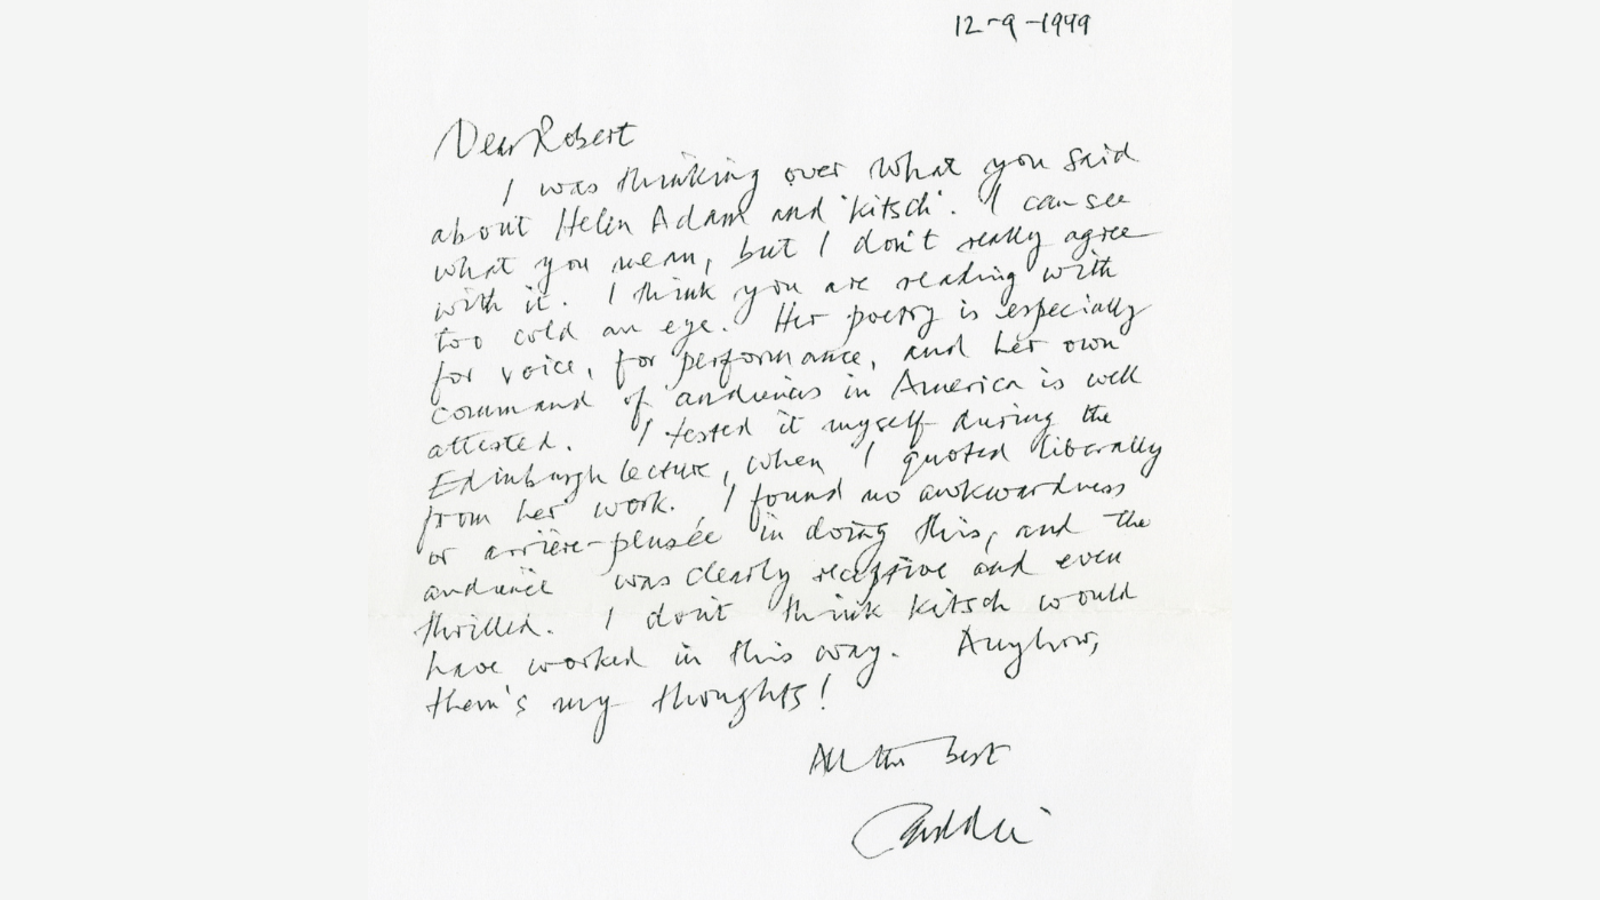 12-9-1999
Dear Robert
I was thinking over what you said
about Helen Adam and 'kitsch'. I can see
what you mean, but I don't really agree
with it. I think you are reading with
too cold an eye. Her poetry is especially
for voice, for performance, and her own
command of audiences in America is well
attested. I tested it myself during the
Edinburgh lecture, when I quoted liberally
from her work. I found no awkwardness
or arrière-pensée in doing this, and the
audience was clearly receptive and even
thrilled. I don't think kitsch would
have worked in this way. Anyhow,
them's my thoughts!
All the best